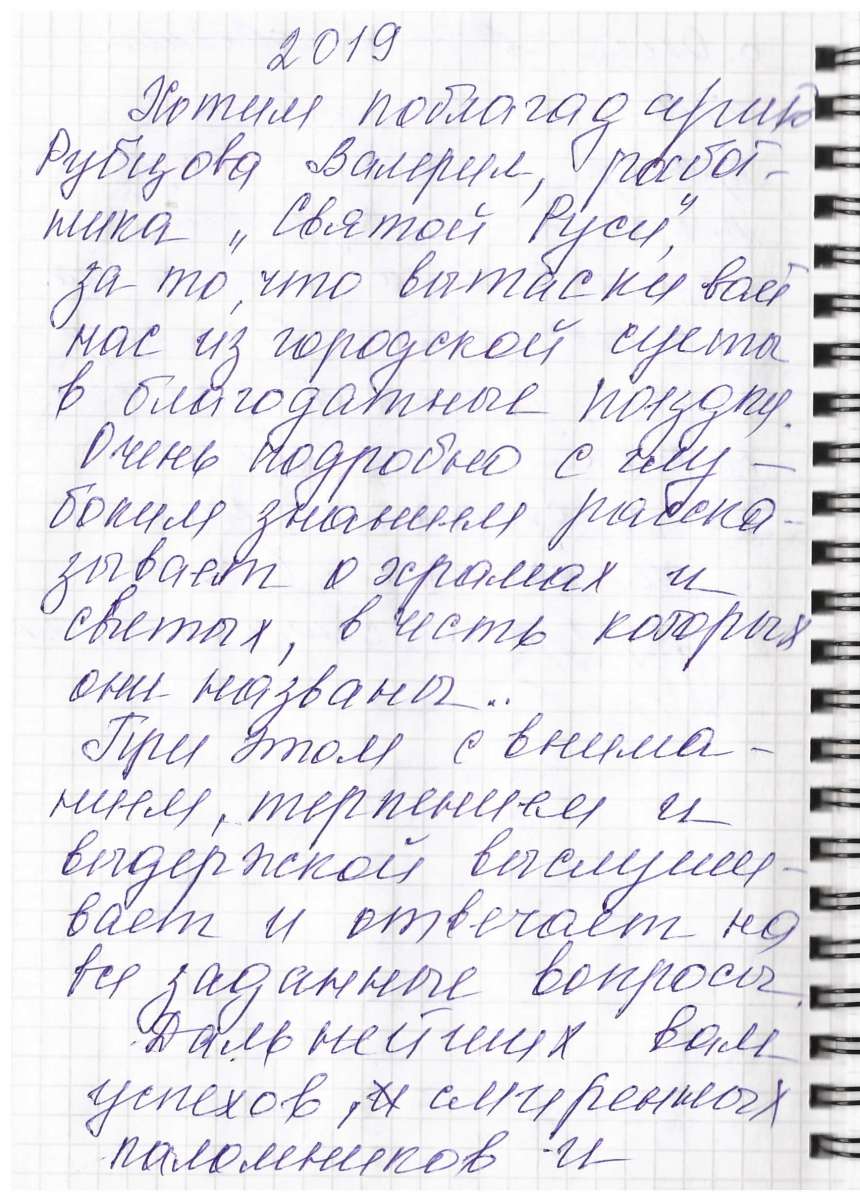 2019
Хотим поблагадарить
Рубцова Валерия, работ-
ника „Святой Руси",
за то, что вытаскивает
нас из городской суеты
в благодатные поездки.
Очень подробно с глу-
боким знанием расска-
зывает о храмах и
святых, в честь которых
они названы..
При этом с внима-
нием, терпением и
выдержкой выслуши-
вает и отвечает на
все заданные вопросы.
Дальнейших вам
успехов, и смиренных
паломников и